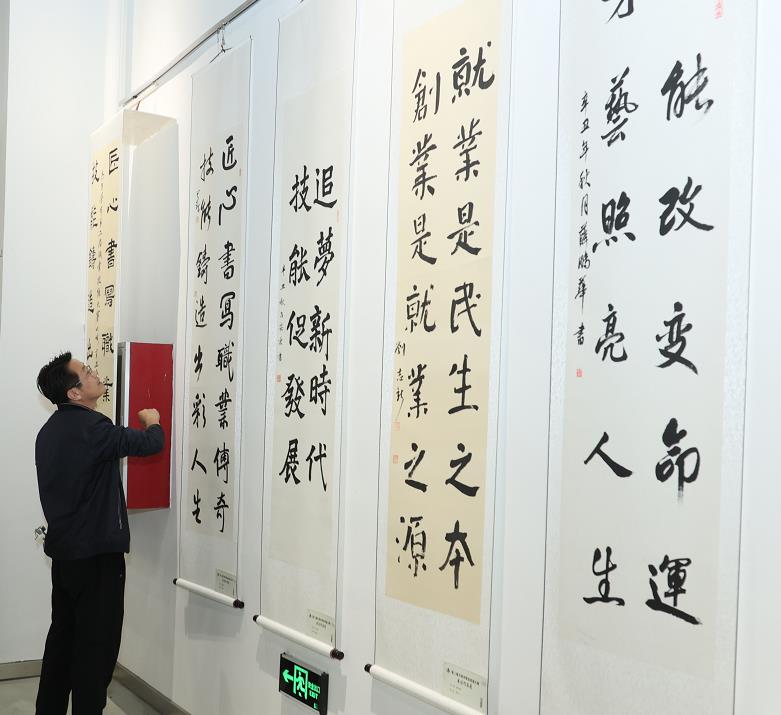 能改变命運
藝照亮人生
辛丑年秋月薛鵬華書
就業是民生之本
創業是就業之源
劉志新
追夢新時代
技能促發展
匠心書寫職業傳奇
技能鑄造出彩人生
匠心書寫職業
技能鑄造出
EXIT